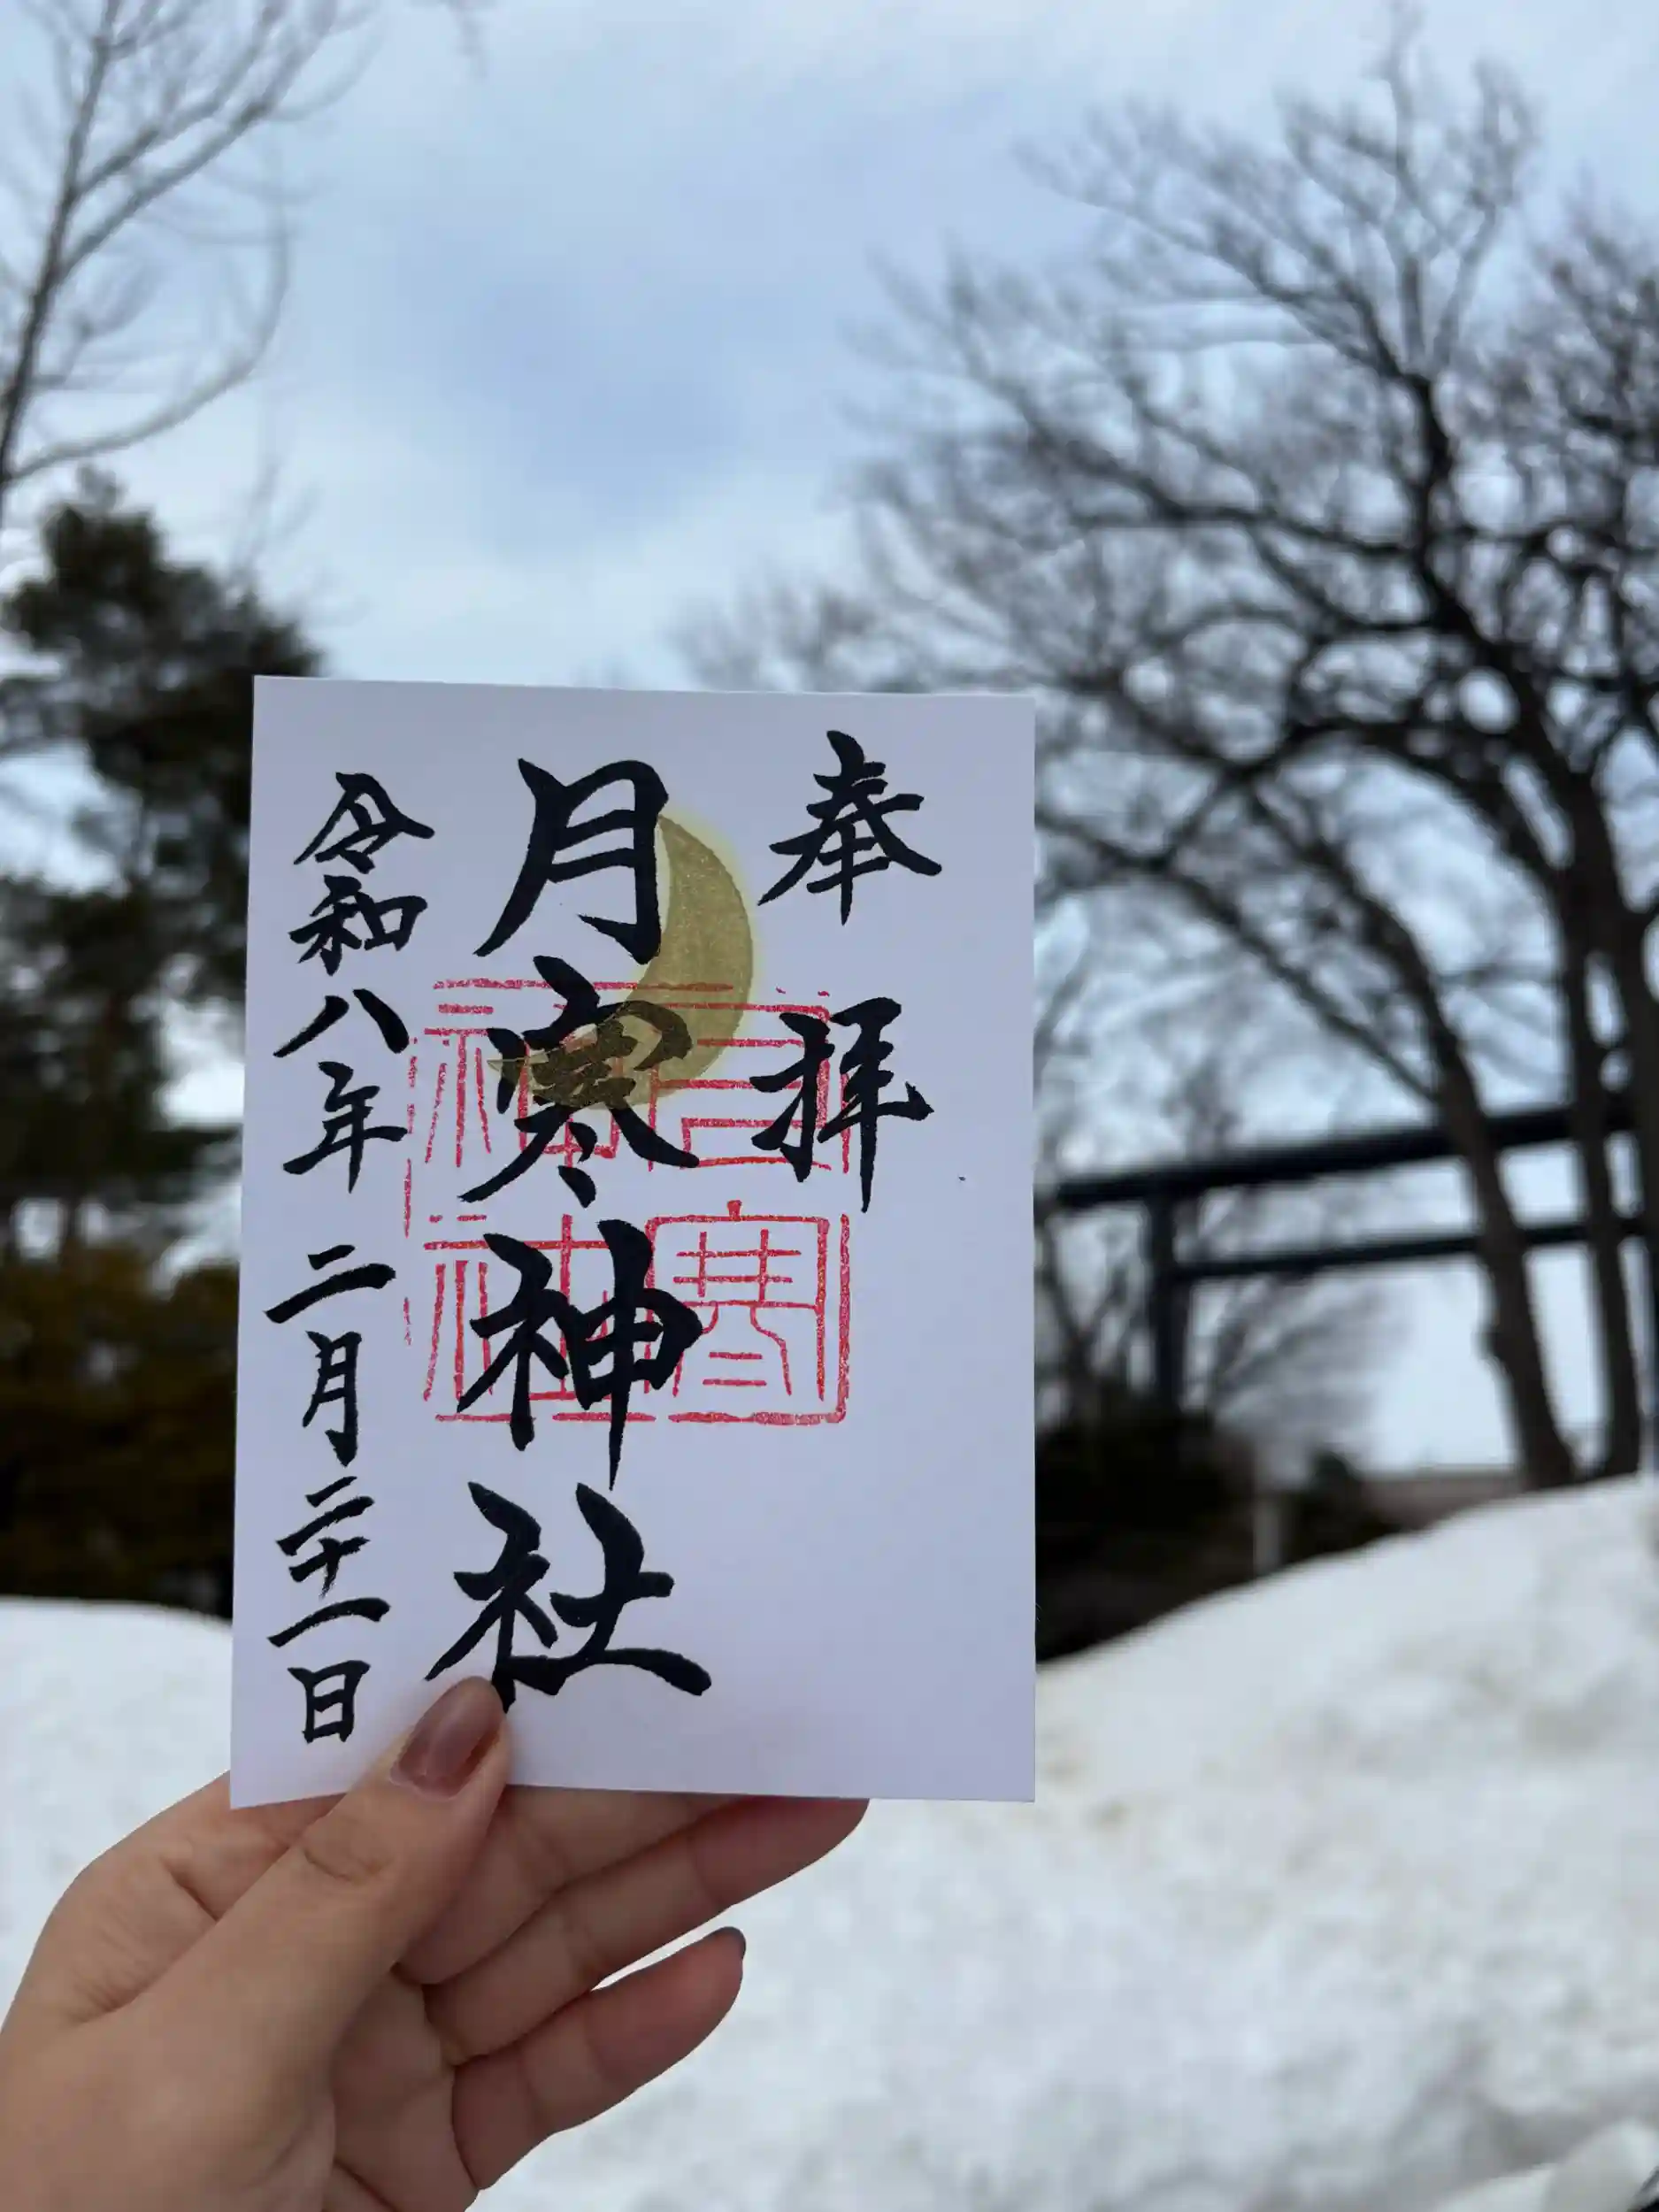 奉拝
月寒神社
月寒神社
令和八年二月二十一日